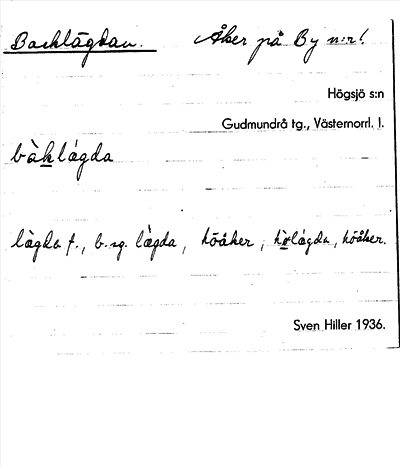 Backlägdan. Åker på By n:r 1.
Högsjö s:n
Gudmundrå tg., Västernorrl. l.
bàklágda
làgda f., b.sg. làgda, höåker, hòlágda, höåker.
Sven Hiller 1936.